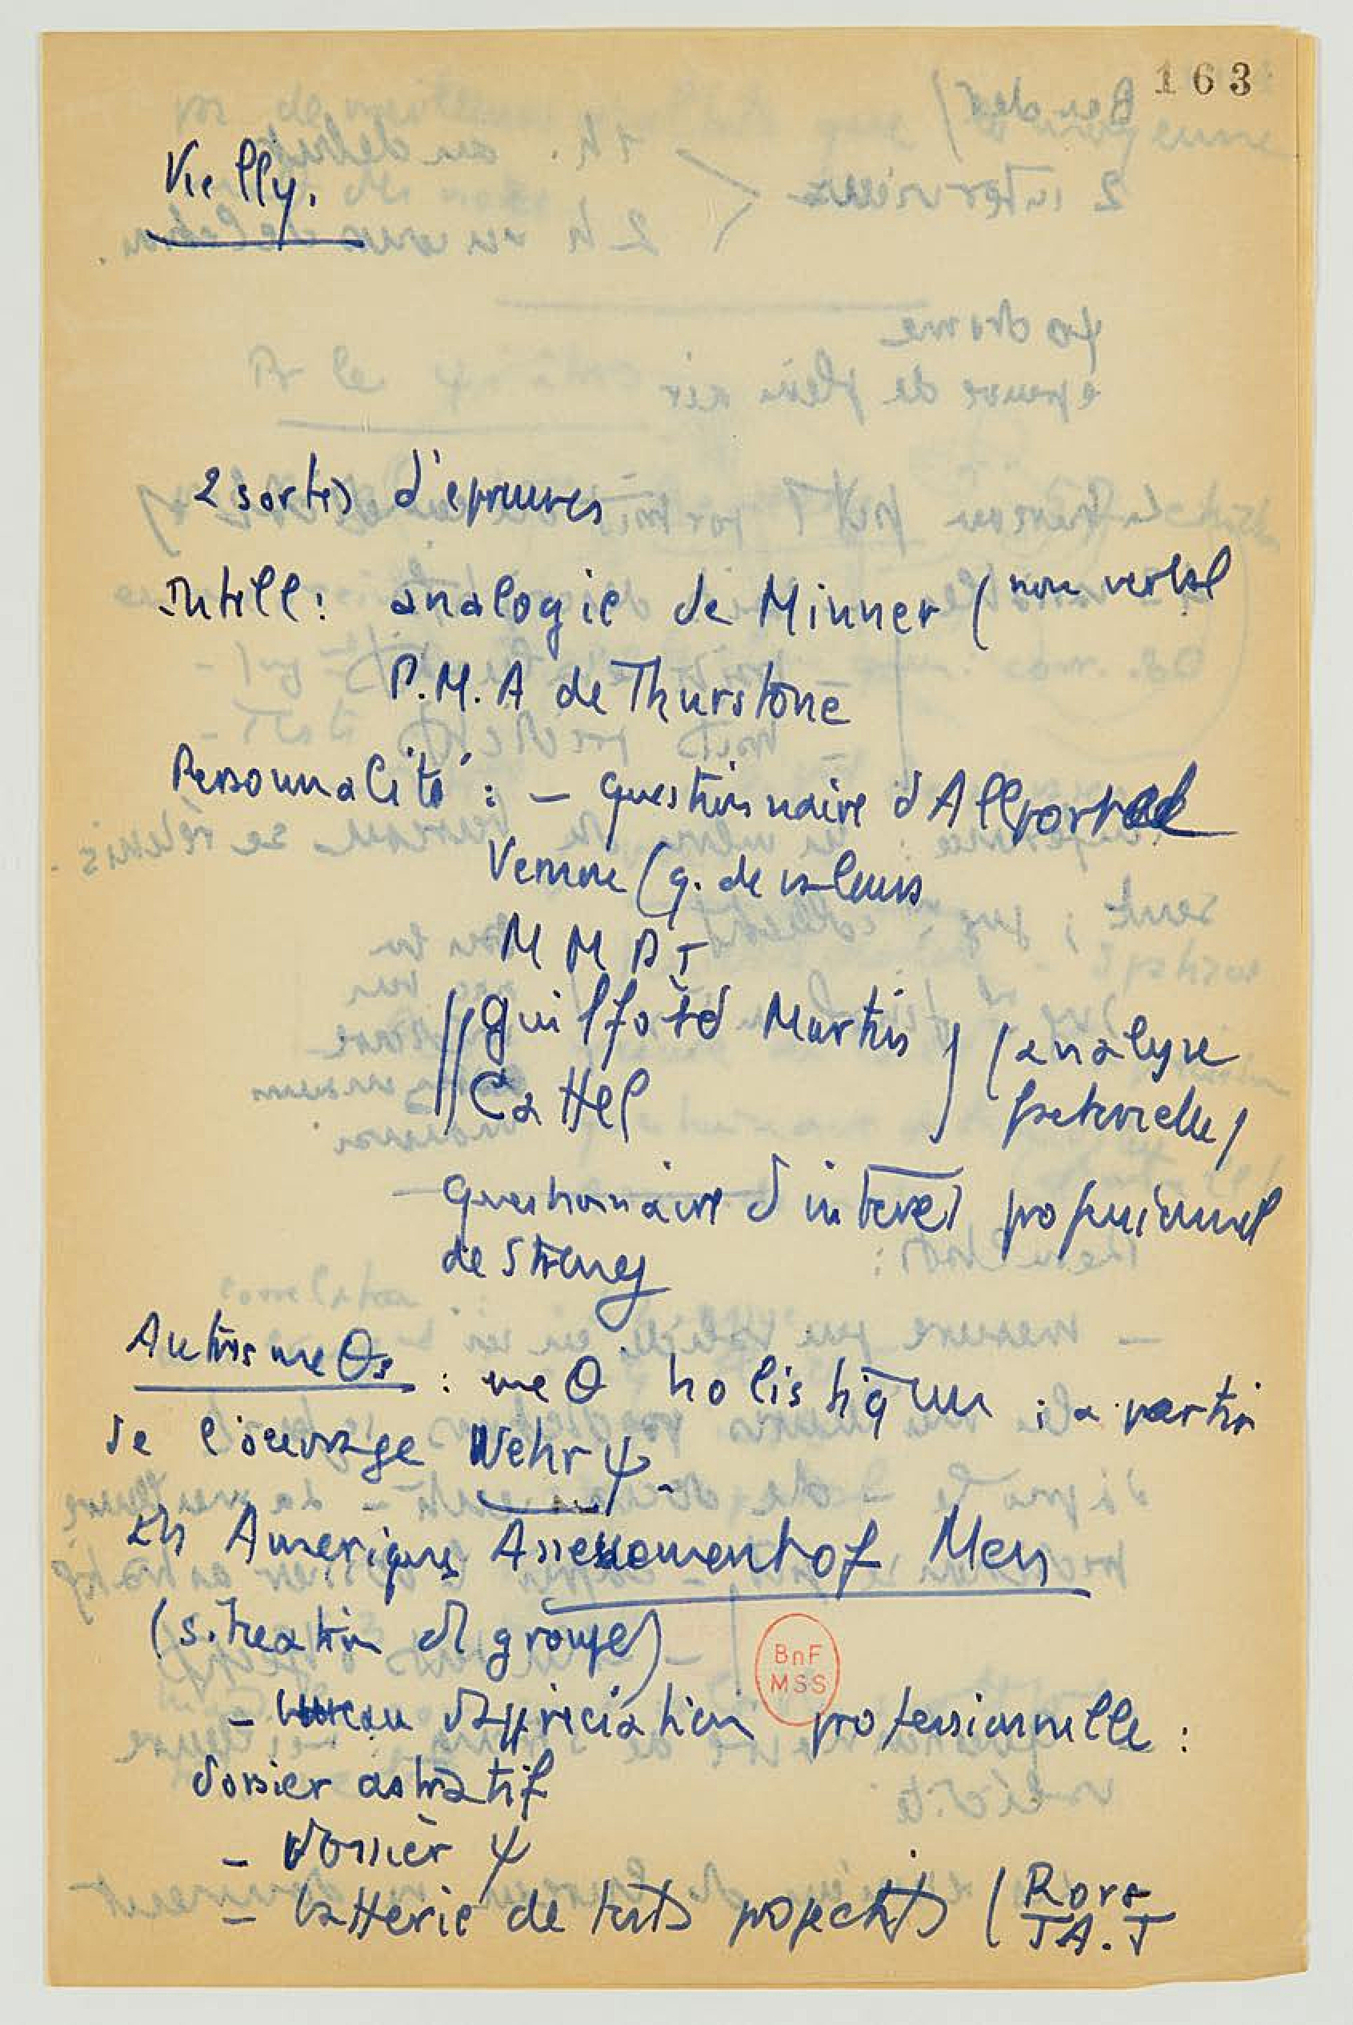 163
Vielly.
2 sortes d'épreuves
Intell: analogie de Minner (non verbal
P.M.A de Thurstone
Personnalité : – questionnaire d'Allport
Vernon (q. de valeurs
M M P I
Guilford Martin } (analyse
Cattel factorielle)
questionnaire d'intérêt professionnel
de Strong
Autres méθes : méθ holistique ; à partir
de l'ouvrage Wehr ψ.
En Amérique Assessement of Men
(situation de groupe)
– d'appréciation professionnelle :
dossier astratif
– dossier ψ
– batterie de tests projectifs ( Rors
T A. T
BnF
MSS